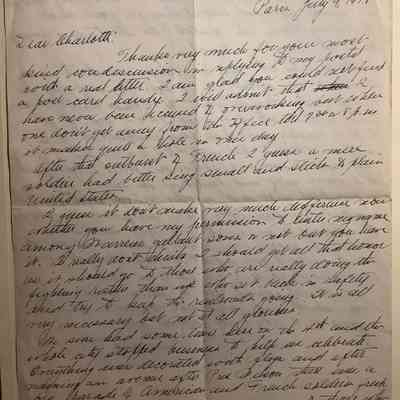 Paris July 9, 191
Dear Charlotte:
Thanks very much for your most
kind condescension in replying to my postal
with a real letter. I am glad you could not find
a post card handy. I will admit that I
have never been accused of overworking but when
one don't get away from the office till 7 or 8 P.M.
it makes quite a hole in one day.
After that outburst of French I guess a mere
soldier had better sing small and stick to plain
United States.
I guess it don't make very much difference now
whether you have my permission to enter my name
among Warren's gallant sons or not but you have
it. I really don't think I should get all that honor
as it should go to those who are really doing the
fighting rather than us who sit back in safety
and try to keep the machinery going. It is all
very necessary but not at all glorious.
We sure had some time here on the 4th and the
whole city stopped business to help us celebrate.
Everything was decorated with flags and after
naming an avenue after Pres. Wilson there was a
big parade of American and French soldiers